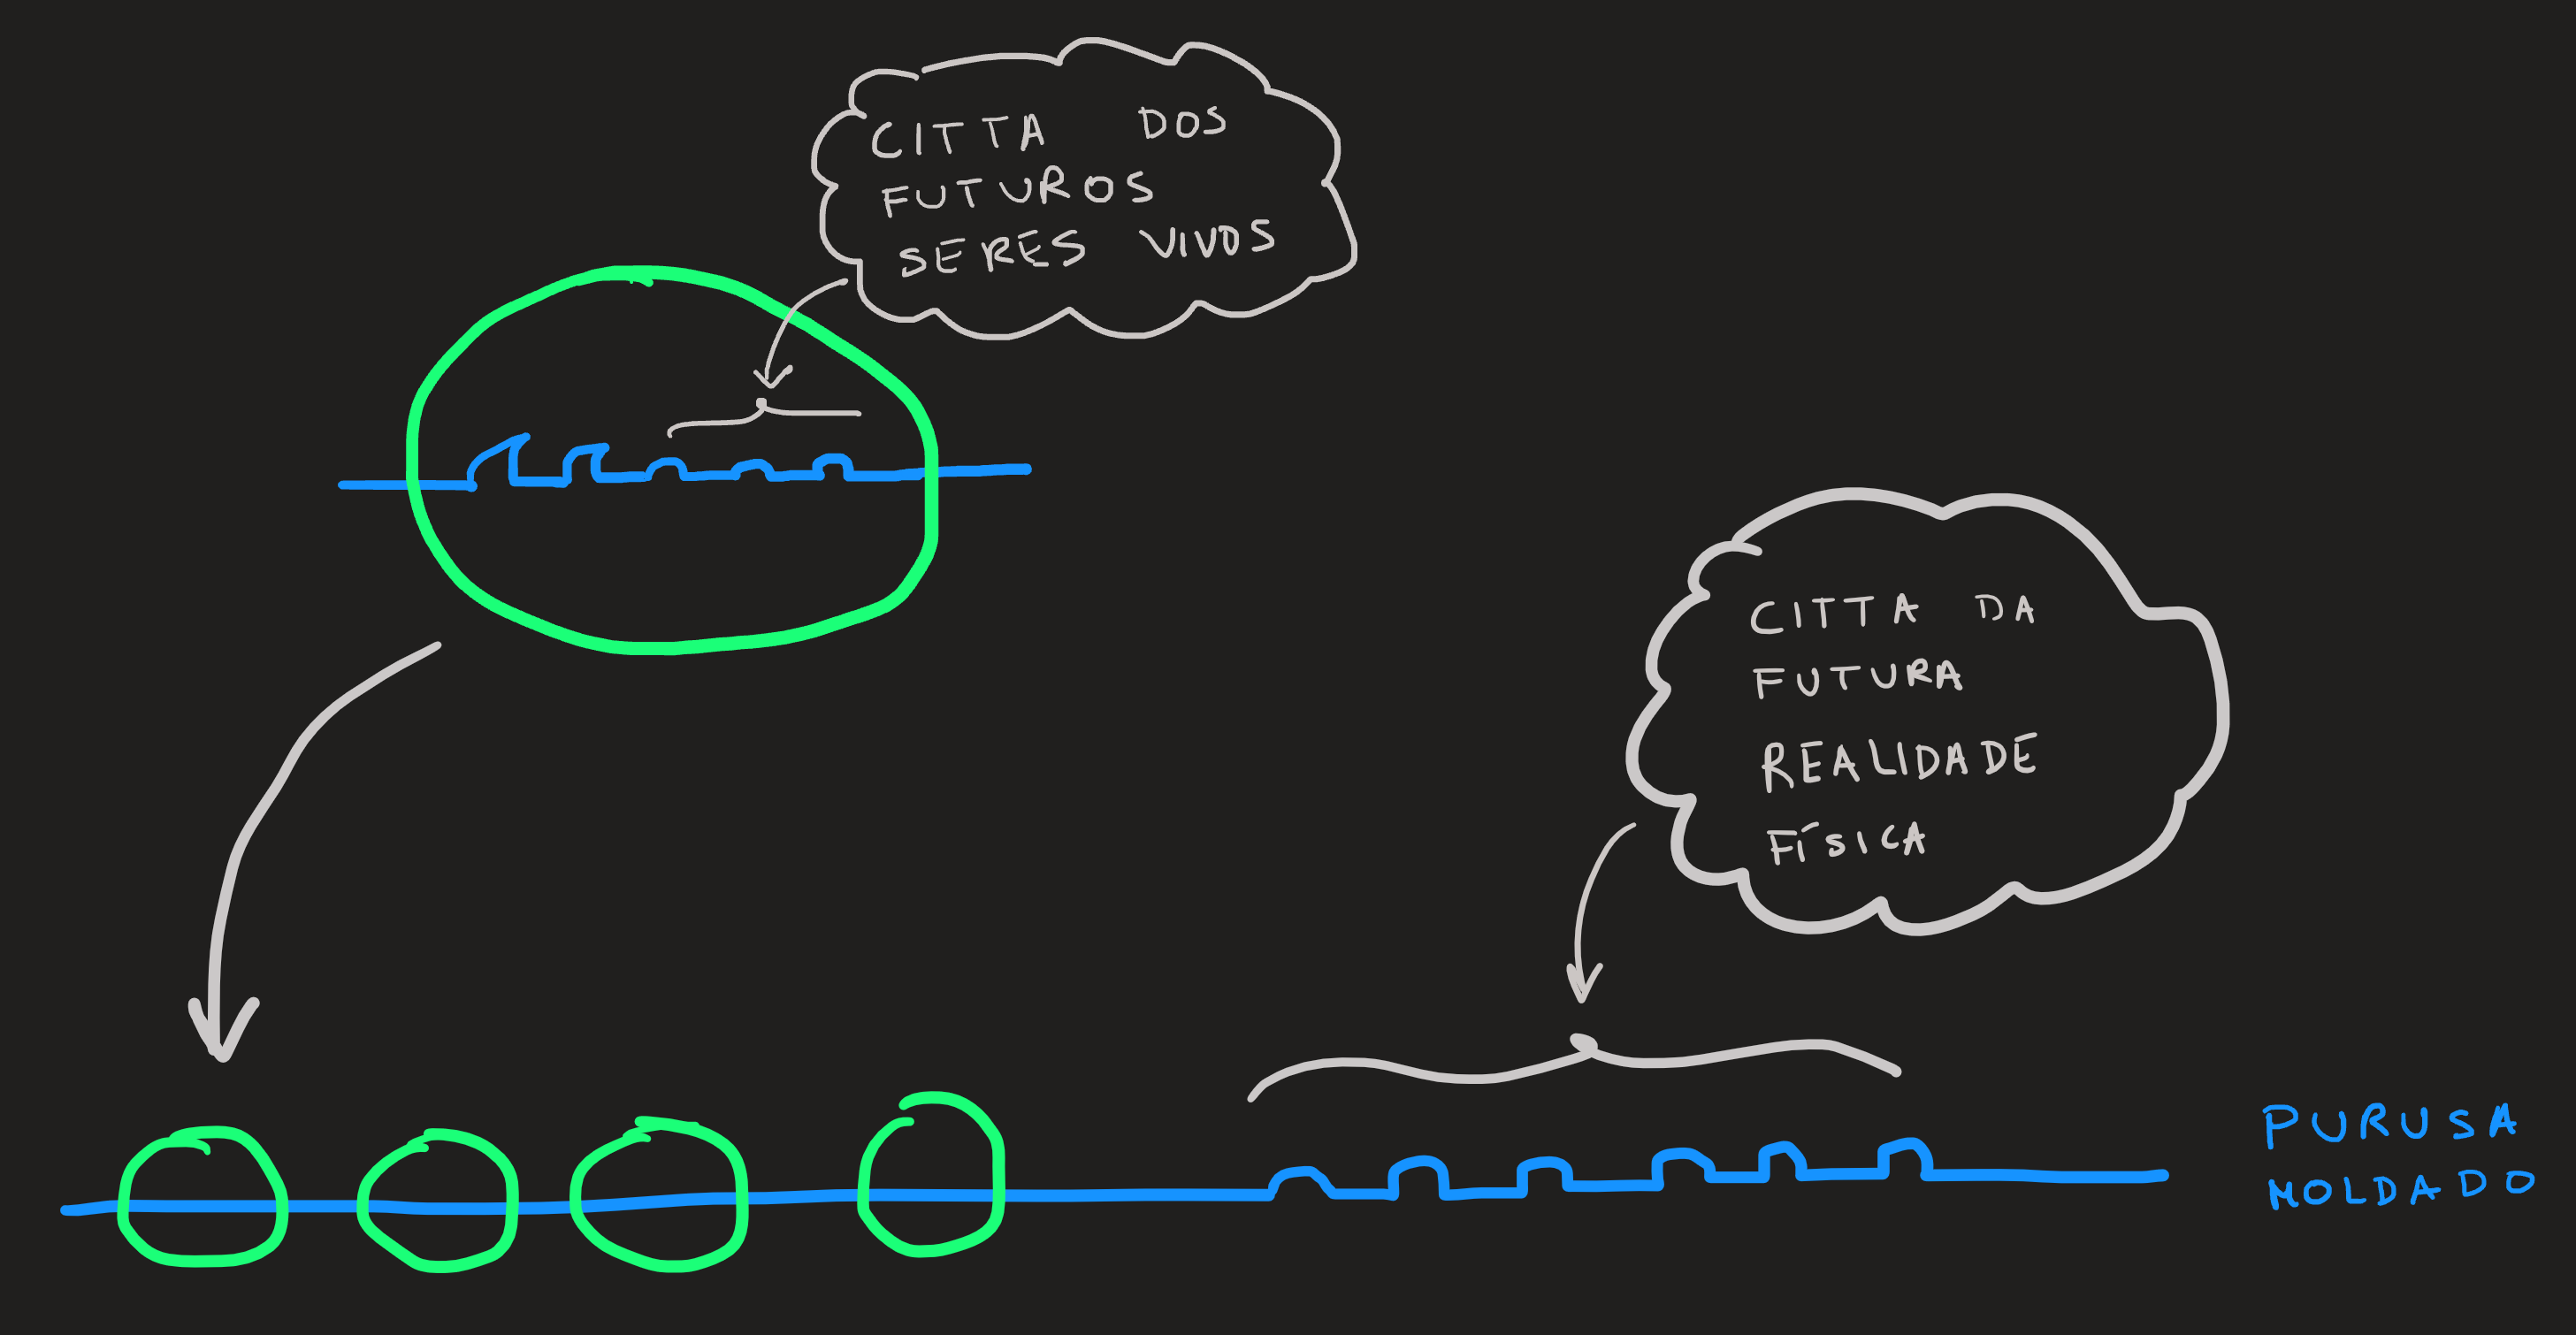 CITTA DOS
FUTUROS
SERES VIVOS
CITTA DA
FUTURA
REALIDADE
FÍSICA
PURUSA
MOLDADO